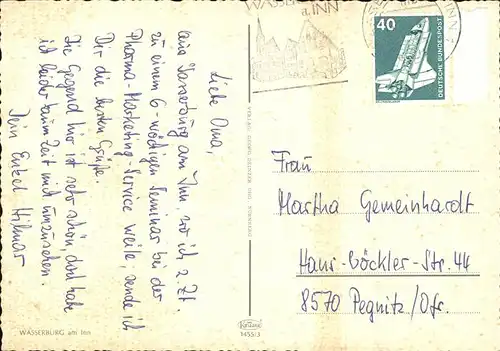 Liebe Oma,
aus Wasserburg am Inn, wo ich z. Zt.
zu einem 6-wöchigen Seminar bei der
Pharma-Marketing-Service weile, sende ich
Dir die besten Grüße.
Die Gegend hier ist sehr schön, doch habe
ich leider kaum Zeit mich umzusehen.
Dein Enkel Hilmar
WASSERBURG
a. INN
40
DEUTSCHE BUNDESPOST
Frau
Martha Gemeinhardt
Hans-Böckler-Str. 44
8570 Pegnitz/Ofr.
WASSERBURG am Inn
Krüger